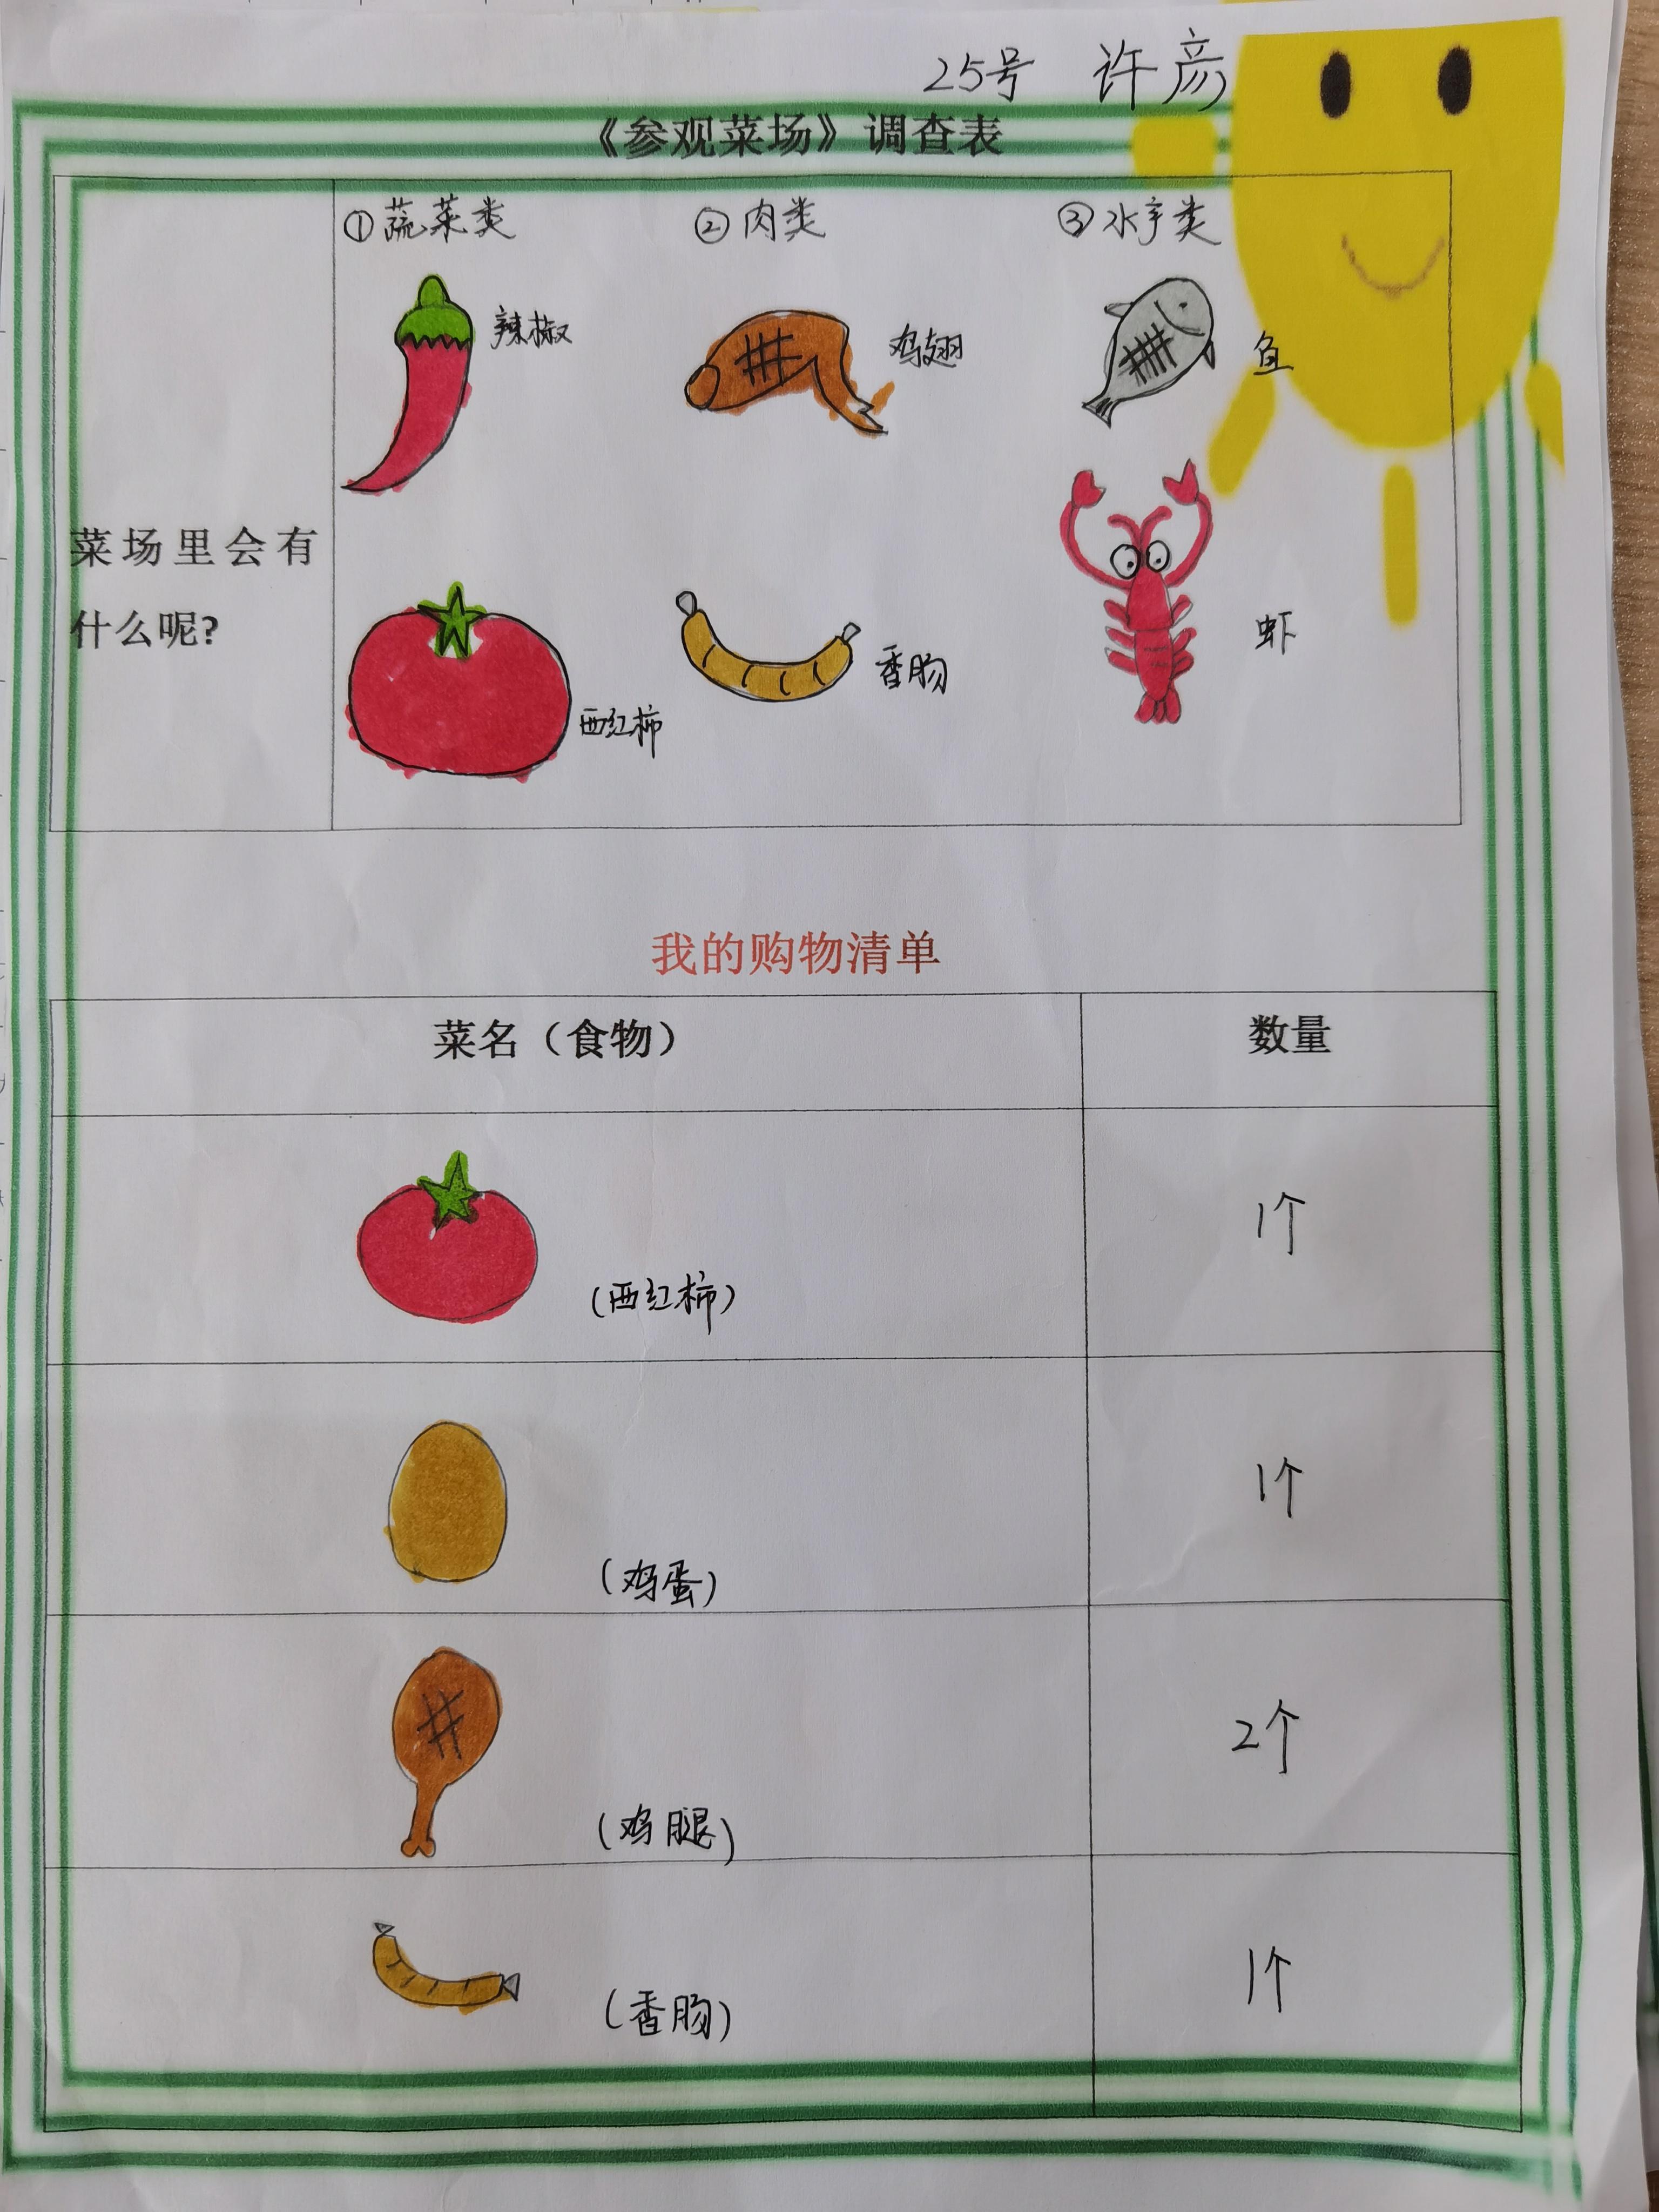 25号 许彦
《参观菜场》调查表
①蔬菜类 ②肉类 ③水产类
辣椒 鸡翅 鱼
菜场里会有
什么呢?
西红柿 香肠 虾
我的购物清单
菜名（食物） 数量
(西红柿) 1个
(鸡蛋) 1个
(鸡腿) 2个
(香肠) 1个